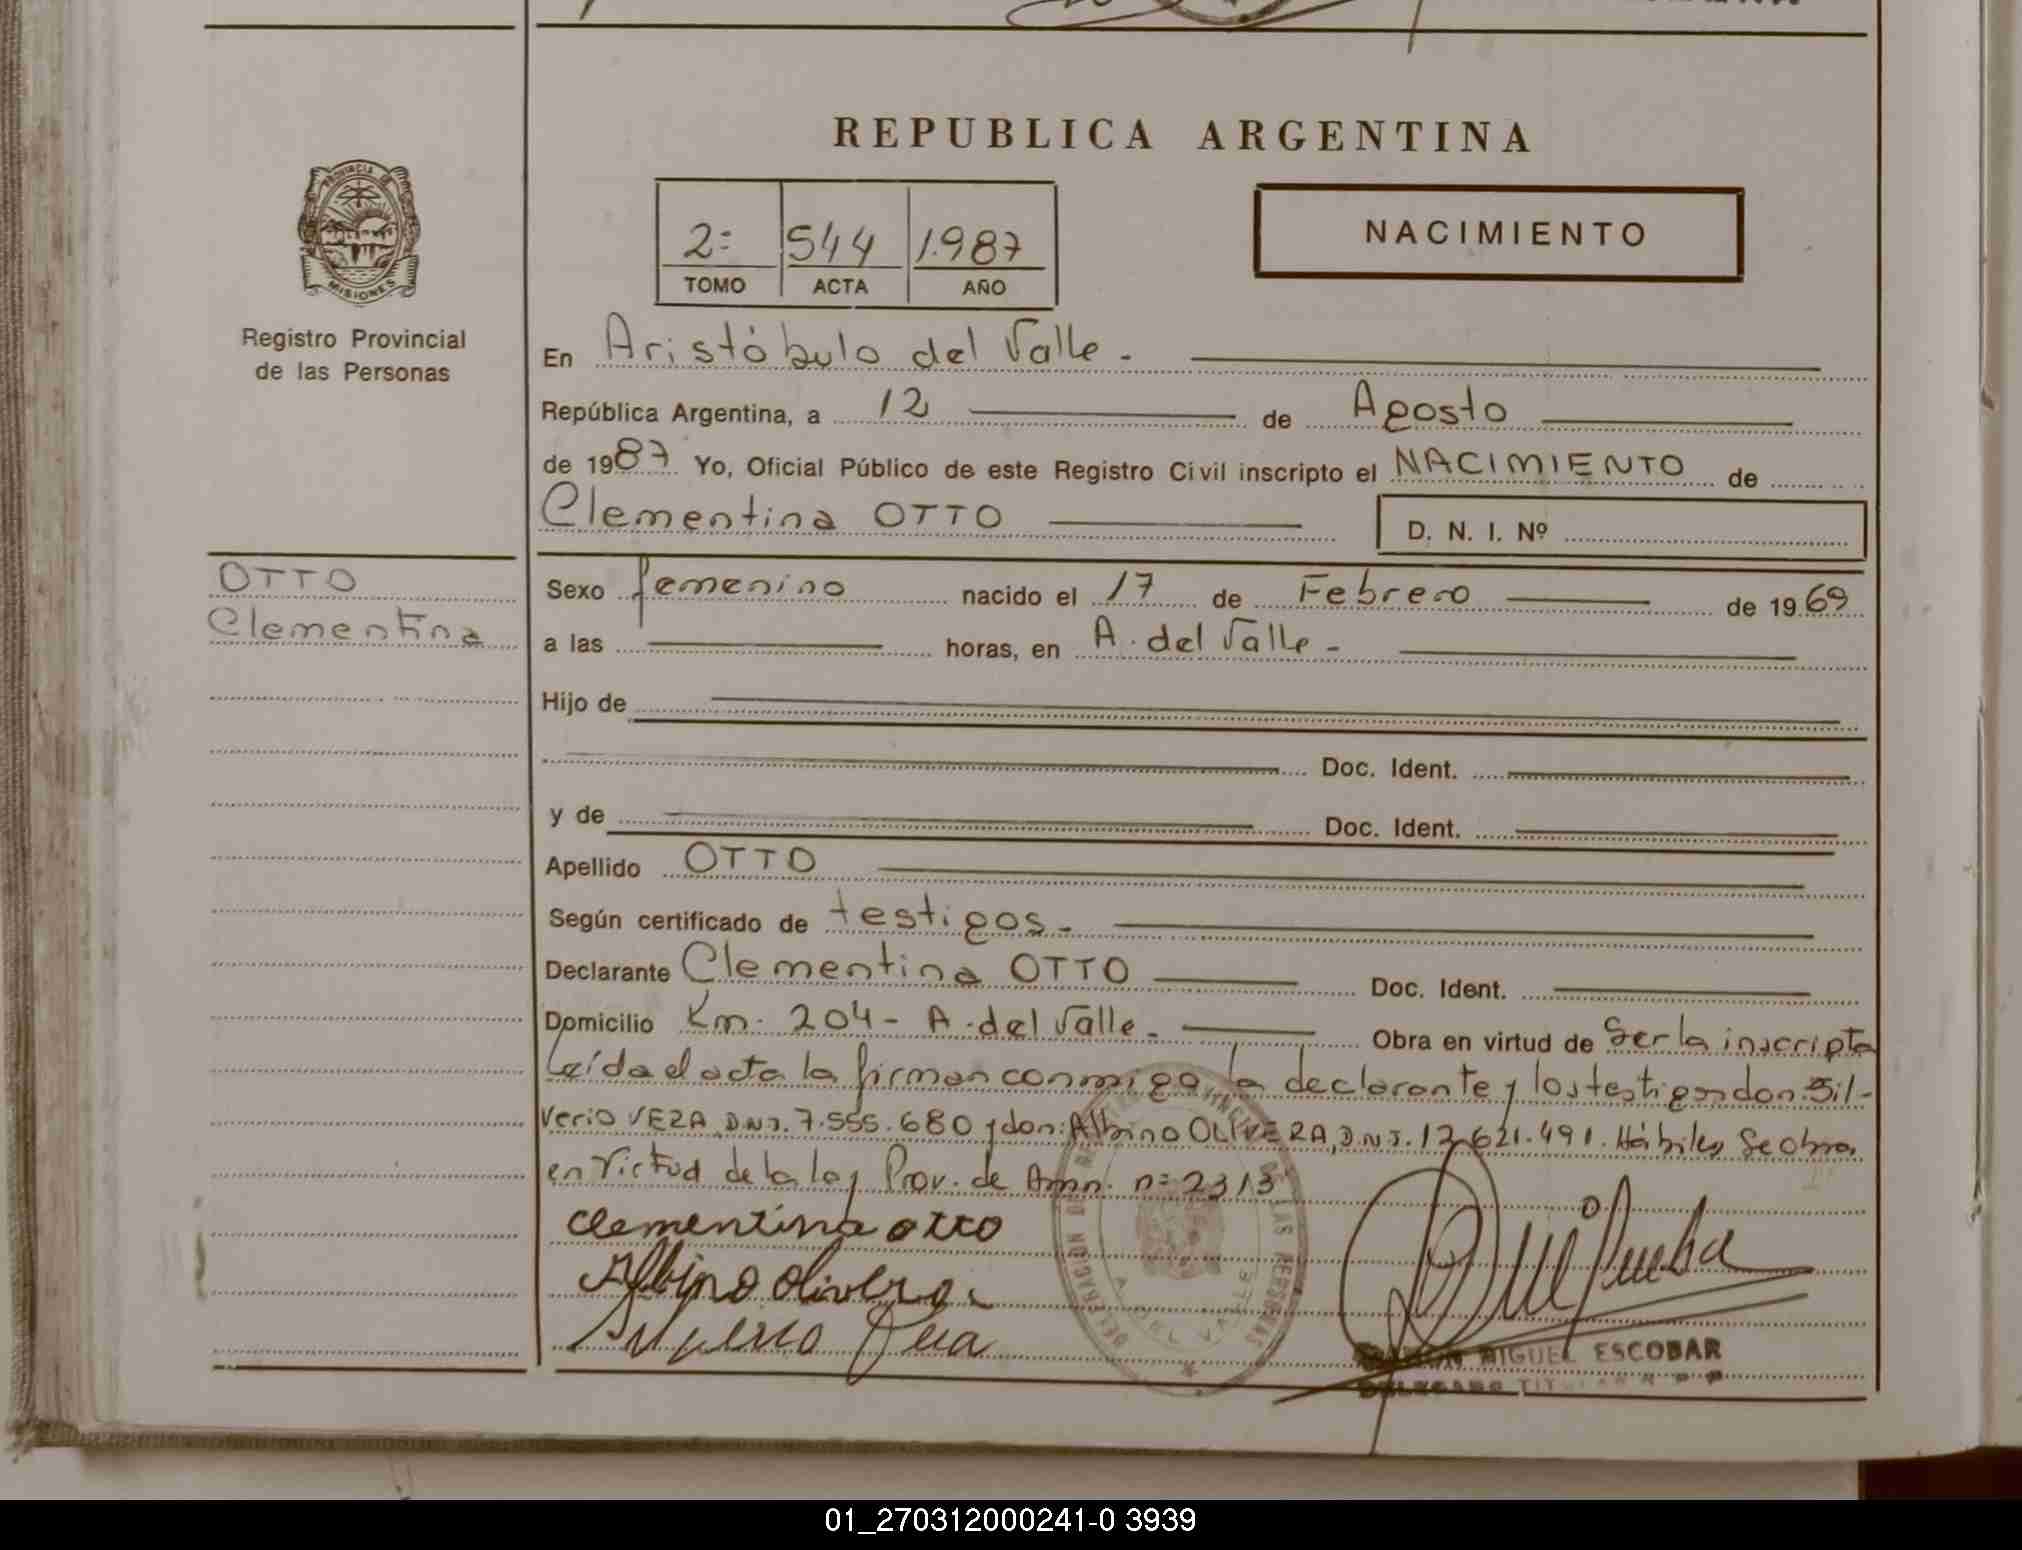 REPUBLICA ARGENTINA
PROVINCIA DE
MISIONES
Registro Provincial
de las Personas
2º 544 1.987
TOMO ACTA AÑO
NACIMIENTO
En Aristóbulo del Valle.-
República Argentina, a 12 de Agosto
de 1987 Yo, Oficial Público de este Registro Civil inscripto el NACIMIENTO de
Clementina OTTO D. N. I. Nº
OTTO
Clementina
Sexo femenino nacido el 17 de Febrero de 1969
a las horas, en A. del Valle-
Hijo de
Doc. Ident.
y de Doc. Ident.
Apellido OTTO
Según certificado de testigos.-
Declarante Clementina OTTO Doc. Ident.
Domicilio Km. 204- A. del Valle.- Obra en virtud de Ser la inscripta
Leída el acta la firman conmigo la declarante y los testigos don: Sil-
verio VEZA, D.N.I. 7.555.680 y don: Albino OLIVERA, D.N.I. 12.621.491. Hábiles Se obra
en Virtud de la ley Prov. de Amn. nº 2313
Clementina otto
Albino Olivera.
DELEGACION DE REGISTRO PROVINCIAL DE LAS PERSONAS
A. DEL VALLE
MIGUEL ESCOBAR
DELEGADO TITULAR
01_270312000241-0 3939